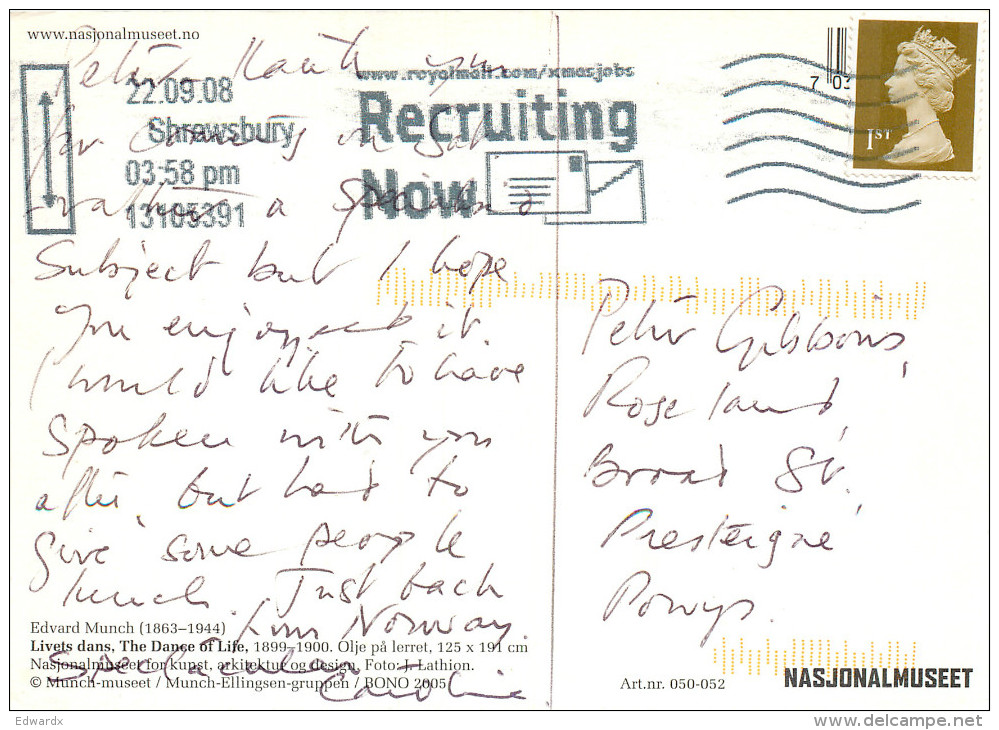 www.nasjonalmuseet.no
22.09.08
Shrewsbury
03:58 pm
13105391
www.royalmail.com/xmasjobs
Recruiting
Now
7 03
1ST
Peter Thank you
for coming on Sat
rather a specialised
Subject but I hope
you enjoyed it.
I would like to have
spoken with you
after, but had to
give some people
lunch. Just back
from Norway.
Spectacular +
Caroline
Peter Gibbons,
Roseland
Broad St.
Presteigne
Powys.
Edvard Munch (1863–1944)
Livets dans, The Dance of Life, 1899–1900. Olje på lerret, 125 x 191 cm
Nasjonalmuseet for kunst, arkitektur og design. Foto: J. Lathion.
© Munch-museet / Munch-Ellingsen-gruppen / BONO 2005
Art.nr. 050-052
NASJONALMUSEET
Edwardx
delcampe.net